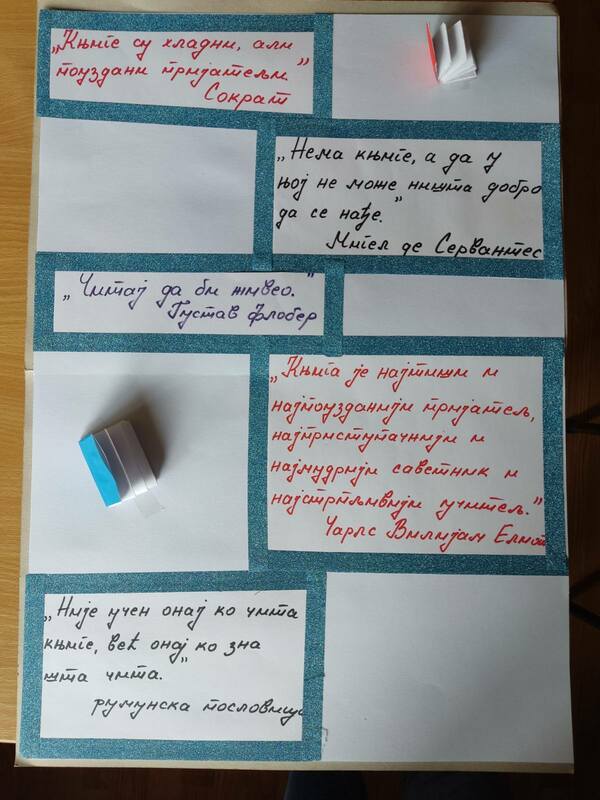 „Књиге су хладни, али
поуздани пријатељи.”
Сократ
„Нема књиге, а да у
њој не може ништа добро
да се нађе.”
Мигел де Сервантес
„Читај да би живео.”
Густав Флобер
„Књига је најтиши и
најпоузданији пријатељ,
најприступачнији и
најмудрији саветник и
најстрпљивији учитељ.”
Чарлс Вилијам Елиот
„Није учен онај ко чита
књиге, већ онај ко зна
шта чита.”
румунска пословица